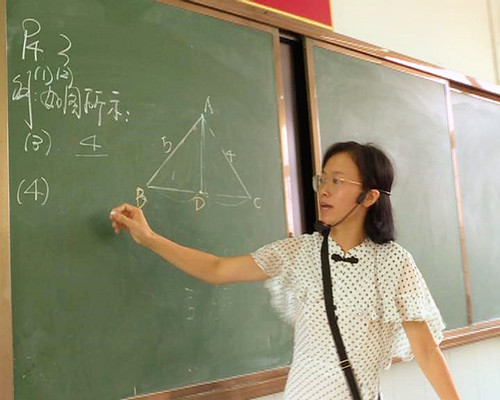 P4 3
(1)(2)
解:如图所示:
(3) 4
(4)
A
5 4
B D C